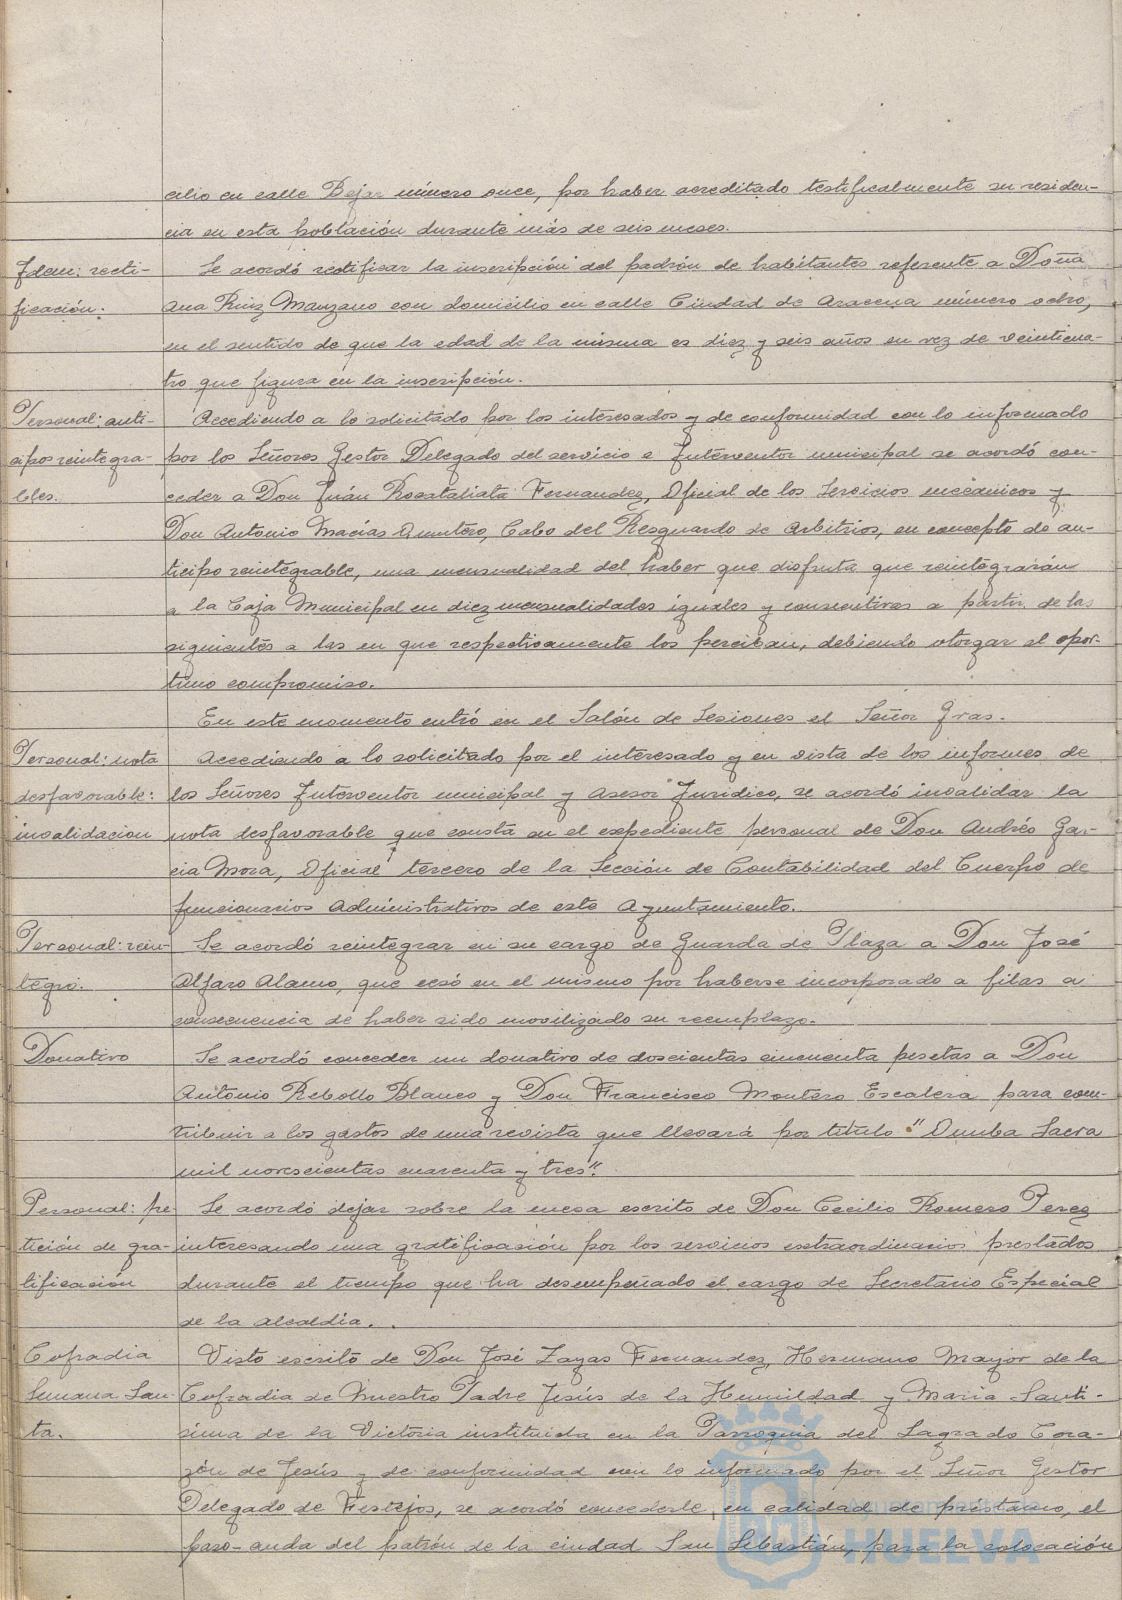 cilio en calle Bejar número once, por haber acreditado testificalmente su residen-
cia en esta población durante más de seis meses.
Idem: recti-
ficación.
Se acordó rectificar la inscripción del padrón de habitantes referente a Doña
Ana Ruiz Manzano con domicilio en calle Ciudad de Aracena número ocho,
en el sentido de que la edad de la misma es diez y seis años en vez de veinticua-
tro que figura en la inscripción.
Personal: anti-
cipos reintegra-
bles.
Accediendo a lo solicitado por los interesados y de conformidad con lo informado
por los Señores Gestor Delegado del servicio e Interventor municipal se acordó con-
ceder a Don Juán Fernandez, Oficial de los Servicios mecánicos y
Don Antonio Macías Quintero, Cabo del Resguardo de Arbitrios, en concepto de an-
ticipo reintegrable, una mensualidad del haber que disfruta que reintegrarán
a la Caja Municipal en diez mensualidades iguales y consecutivas a partir de las
siguientes a las en que respectivamente los perciban, debiendo otorgar el opor-
tuno compromiso.
En este momento entró en el Salón de Sesiones el Señor Gras.
Personal: nota
desfavorable:
invalidacion
Accediendo a lo solicitado por el interesado y en vista de los informes de
los Señores Interventor municipal y Asesor Jurídico, se acordó invalidar la
nota desfavorable que consta en el expediente personal de Don Andrés Gar-
cia Mora, Oficial tercero de la Sección de Contabilidad del Cuerpo de
funcionarios Administrativos de este Ayuntamiento.
Personal: rein-
tegro.
Se acordó reintegrar en su cargo de Guarda de Plaza a Don José
Alfaro Alamo, que cesó en el mismo por haberse incorporado a filas a
consecuencia de haber sido movilizado su reemplazo.
Donativo
Se acordó conceder un donativo de doscientas cincuenta pesetas a Don
Antonio Rebollo Blanco y Don Francisco Montero Escalera para con-
tribuir a los gastos de una revista que llevará por título "Onuba Sacra
mil novescientas cuarenta y tres".
Personal: pe-
tición de gra-
tificación
Se acordó dejar sobre la mesa escrito de Don Cecilio Romero Perez
interesando una gratificasión por los servicios extraordinarios prestados
durante el tiempo que ha desempeñado el cargo de Secretario Especial
de la Alcaldía.
Cofradia
Semana San-
ta.
Visto escrito de Don José Zayas Fernandez, Hermano Mayor de la
Cofradia de Nuestro Padre Jesús de la Humildad y Maria Santi-
sima de la Victoria instituida en la Parroquia del Sagrado Cora-
zón de Jesús y de conformidad con lo informado por el Señor Gestor
Delegado de Festejos, se acordó concederle, en calidad de préstamo, el
paso-anda del patrón de la ciudad San Sebastián, para la colocación
Ayuntamiento de
HUELVA